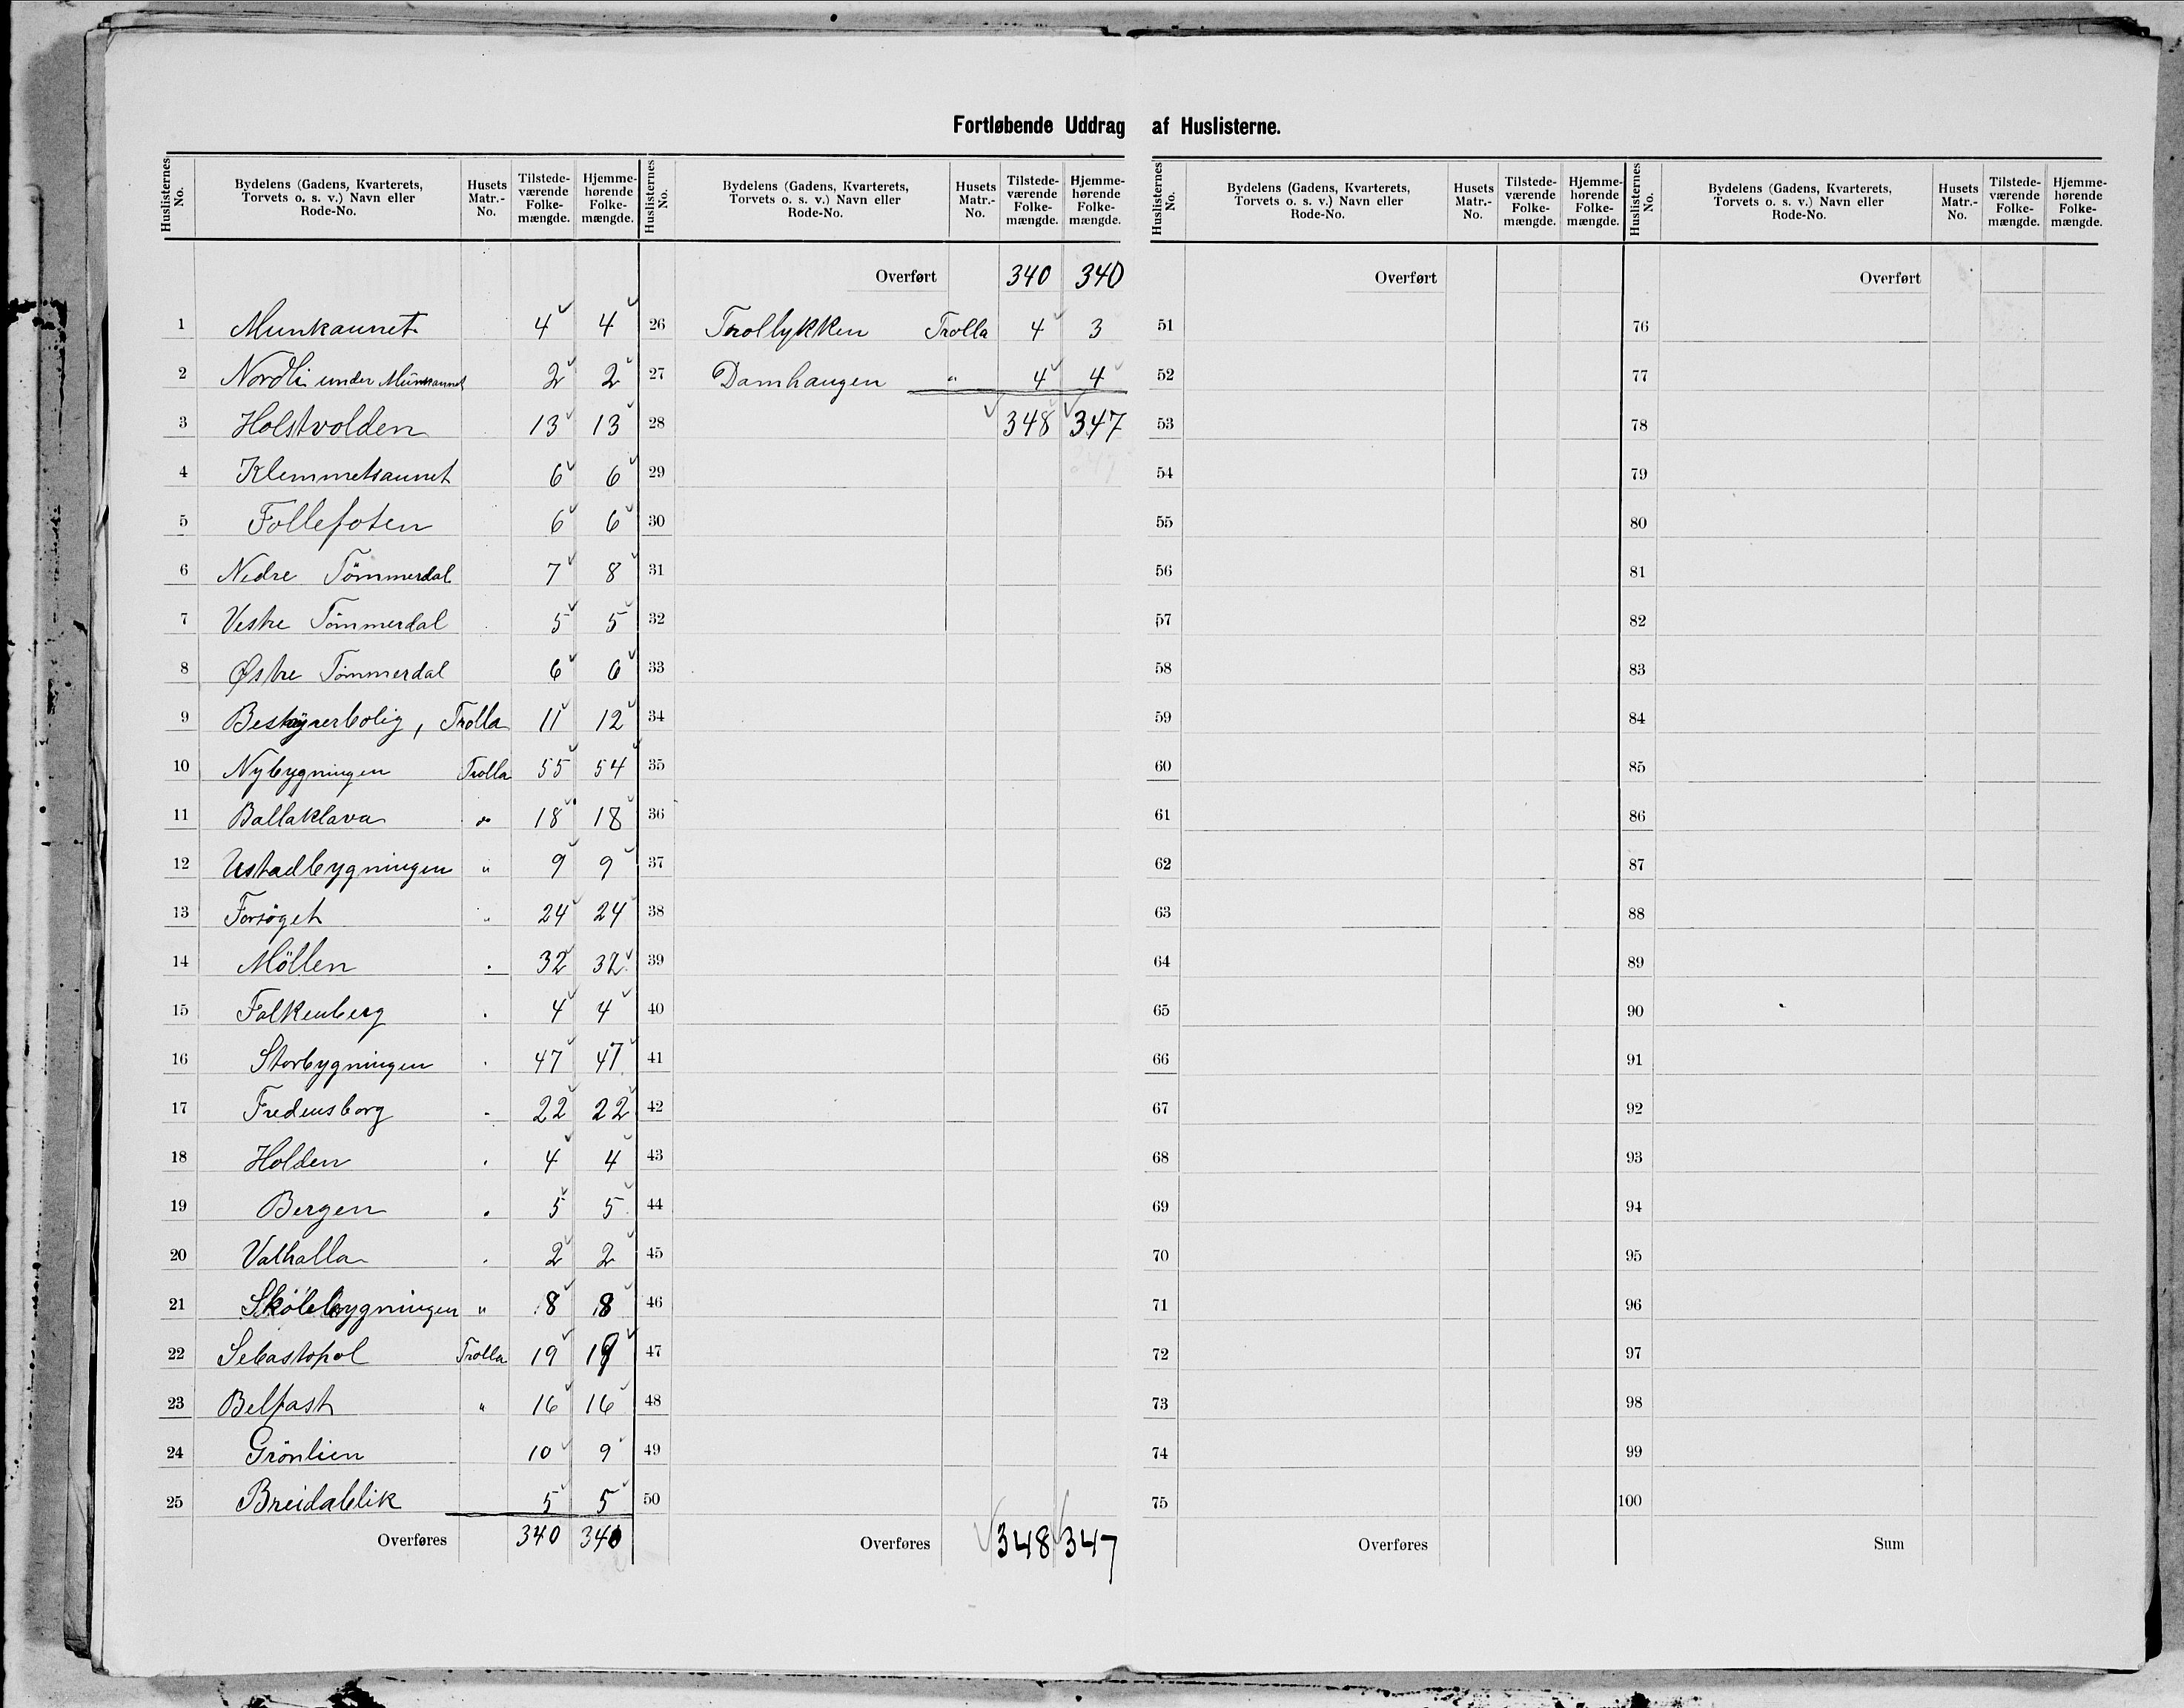 Fortløbende Uddrag af Huslisterne.
Huslisternes No. Bydelens (Gadens, Kvarterets, Torvets o. s. v.) Navn eller Rode-No. Husets Matr.-No. Tilstede-værende Folke-mængde. Hjemme-hørende Folke-mængde.
1 Munkaunet 4 4
2 Nordli under Munkaunet 2 2
3 Holstvolden 13 13
4 Klemmetsaunet 6 6
5 Follefoten 6 6
6 Nedre Tömmerdal 7 8
7 Vestre Tömmerdal 5 5
8 Østre Tömmerdal 6 6
9 Bestyrerbolig, Trolla 11 12
10 Nybygningen Trolla 55 54
11 Ballaklava do 18 18
12 Ustadbygningen " 9 9
13 Forsöget " 24 24
14 Möllen . 32 32
15 Falkenberg . 4 4
16 Storbygningen . 47 47
17 Fredensborg . 22 22
18 Holden . 4 4
19 Bergen . 5 5
20 Valhalla . 2 2
21 Skolebygningen " 8 8
22 Sebastopol Trolla 19 19
23 Belfast " 16 16
24 Grönlien 10 9
25 Breidablik 5 5
Overføres 340 340
Huslisternes No. Bydelens (Gadens, Kvarterets, Torvets o. s. v.) Navn eller Rode-No. Husets Matr.-No. Tilstede-værende Folke-mængde. Hjemme-hørende Folke-mængde.
Overført 340 340
26 Trollykken Trolla 4 3
27 Damhaugen " 4 4
28 348 347
29
30
31
32
33
34
35
36
37
38
39
40
41
42
43
44
45
46
47
48
49
50
Overføres 348 347
Huslisternes No. Bydelens (Gadens, Kvarterets, Torvets o. s. v.) Navn eller Rode-No. Husets Matr.-No. Tilstede-værende Folke-mængde. Hjemme-hørende Folke-mængde.
Overført
51
52
53
54
55
56
57
58
59
60
61
62
63
64
65
66
67
68
69
70
71
72
73
74
75
Overføres
Huslisternes No. Bydelens (Gadens, Kvarterets, Torvets o. s. v.) Navn eller Rode-No. Husets Matr.-No. Tilstede-værende Folke-mængde. Hjemme-hørende Folke-mængde.
Overført
76
77
78
79
80
81
82
83
84
85
86
87
88
89
90
91
92
93
94
95
96
97
98
99
100
Sum